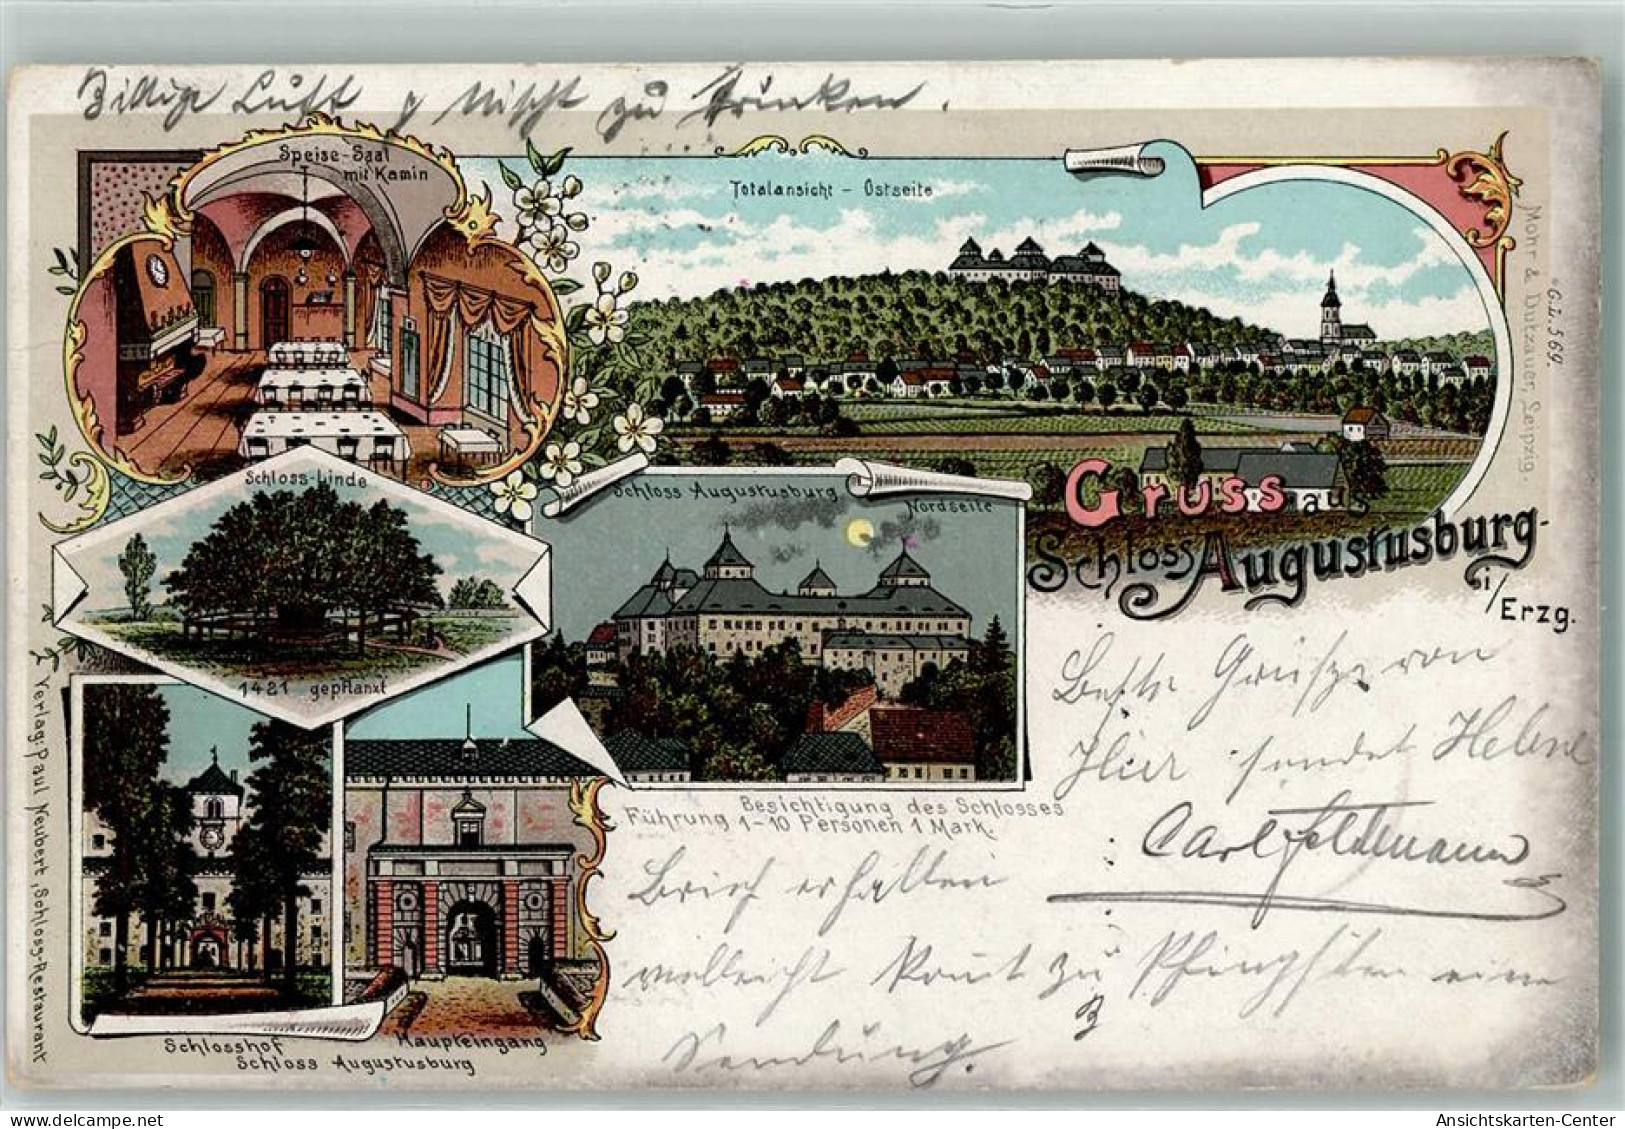 Billige Luft & nischt zu trinken.
Speise-Saal
mit Kamin
Totalansicht – Ostseite
Mohr & Dutzauer, Leipzig.
"G.L. 569.
Schloss-Linde
1421 gepflanzt
Schloss Augustusburg
Nordseite
Gruss aus
Schloss Augustusburg
i/Erzg.
Beste Grüsze von
Hier sendet Helene
Carl Feldmann
Besichtigung des Schlosses
Führung 1-10 Personen 1 Mark.
Brief erhalten
vielleicht kommt zu Pfingsten eine
Sendung.
Verlag: Paul Neubert, Schloss-Restaurant
Schlosshof
Haupteingang
Schloss Augustusburg
delcampe.net
Ansichtskarten-Center